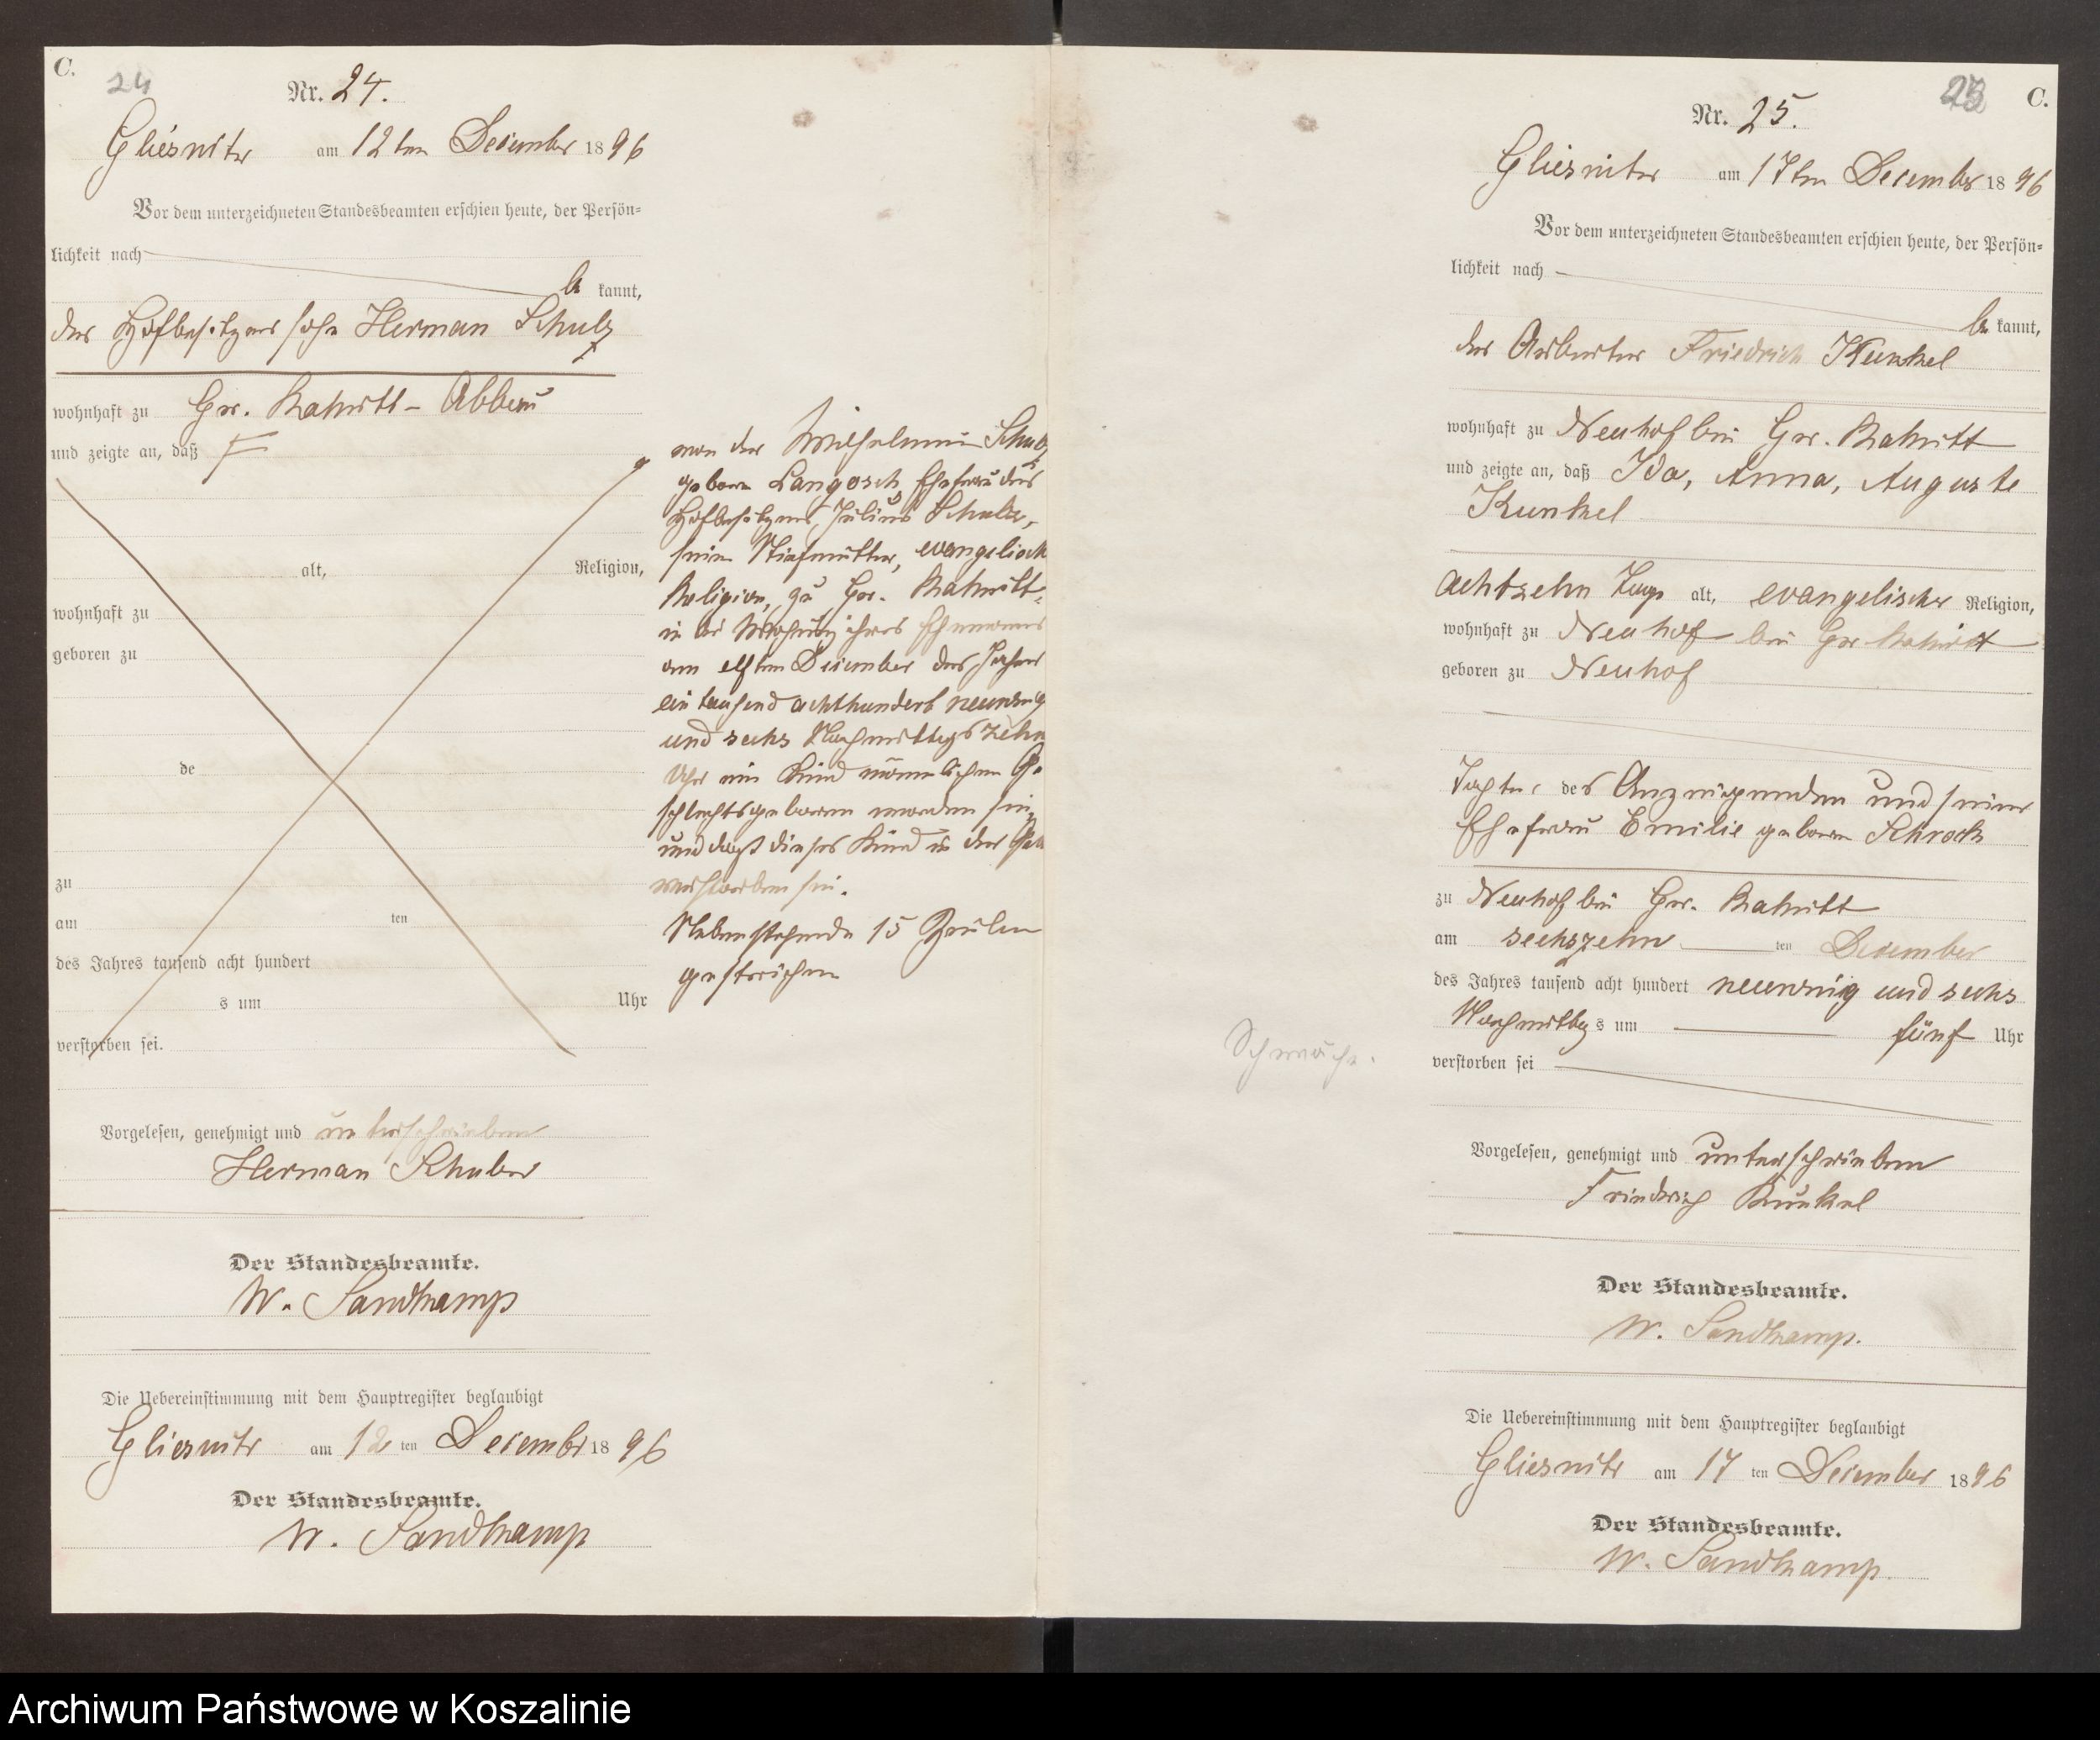 C.
24
Nr. 24.
Gliesnitz am 12ten December 1896
Vor dem unterzeichneten Standesbeamten erschien heute, der Persön=
lichkeit nach
be kannt,
der Hofbesitzerssohn Herman Schulz
wohnhaft zu Gr. Rakitt - Abbau
und zeigte an, daß
alt, Religion,
wohnhaft zu
geboren zu
de
zu
am ten
des Jahres tausend acht hundert
s um Uhr
verstorben sei.
von der Wilhelmine Schulz
geborn Langosch Ehefrau des
Hofbesitzers Julius Schulz,
seine Stiefmutter, evangelisch
Religion, zu Gr. Rakitt-
in der Wohnung ihres Ehemannes
am elften December des Jahres
ein tausend achthundert neunzig
und sechs Nachmittags zehn
Uhr ein Kind männlichen Ge
schlechts geboren worden sei,
und daß dieses Kind in der Geb
verstorben sei.
Nebenstehende 15 Zeilen
gestrichen
Vorgelesen, genehmigt und unterschrieben
Herman Schulz
Der Standesbeamte.
W. Sandkamp
Die Uebereinstimmung mit dem Hauptregister beglaubigt
Gliesnitz am 12 ten December 1896
Der Standesbeamte.
W. Sandkamp
C.
Nr. 25.
Gliesnitz am 17ten December 1896
Vor dem unterzeichneten Standesbeamten erschien heute, der Persön=
lichkeit nach
be kannt,
der Arbeiter Friedrich Kunkel
wohnhaft zu Neuhof bei Gr. Rakitt
und zeigte an, daß Ida, Anna, Auguste
Kunkel
achtzehn Tage alt, evangelischer Religion,
wohnhaft zu Neuhof bei Gr Rakitt
geboren zu Neuhof
Tochter des Anzeigenden und seiner
Ehefrau Emilie geborn Schrock
zu Neuhof bei Gr. Rakitt
am sechszehn ten December
des Jahres tausend acht hundert neunzig und sechs
Nachmittags um fünf Uhr
verstorben sei
Schwäche.
Vorgelesen, genehmigt und unterschrieben
Friedrich Kunkel
Der Standesbeamte.
W. Sandkamp.
Die Uebereinstimmung mit dem Hauptregister beglaubigt
Gliesnitz am 17 ten December 1896
Der Standesbeamte.
W. Sandkamp.
Archiwum Państwowe w Koszalinie